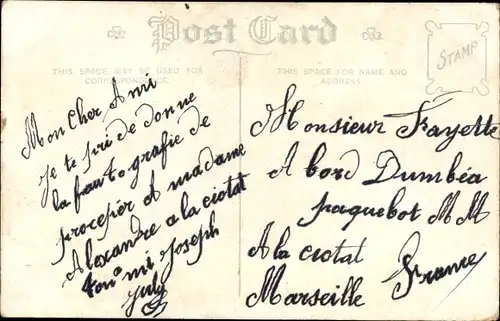 Post Card
THIS SPACE MAY BE USED FOR
CORRESPONDENCE
THIS SPACE FOR NAME AND
ADDRESS
STAMP
Mon Cher Ami
Je te pri de donne
la fauto grafie de
procepier A madame
Alexandre a la ciotat
ton mit Joseph
July
Monsieur Fayette
A bord Dumbéa
paquebot MM
A la ciotat
Marseille France